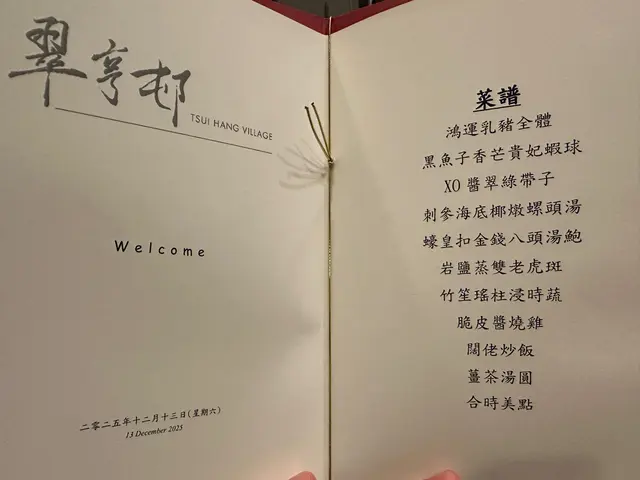 翠亨邨
TSUI HANG VILLAGE
Welcome
二零二五年十二月十三日(星期六)
13 December 2025
菜譜
鴻運乳豬全體
黑魚子香芒貴妃蝦球
XO 醬翠綠帶子
刺參海底椰燉螺頭湯
蠔皇扣金錢八頭湯鮑
岩鹽蒸雙老虎斑
竹笙瑤柱浸時蔬
脆皮醬燒雞
闊佬炒飯
薑茶湯圓
合時美點